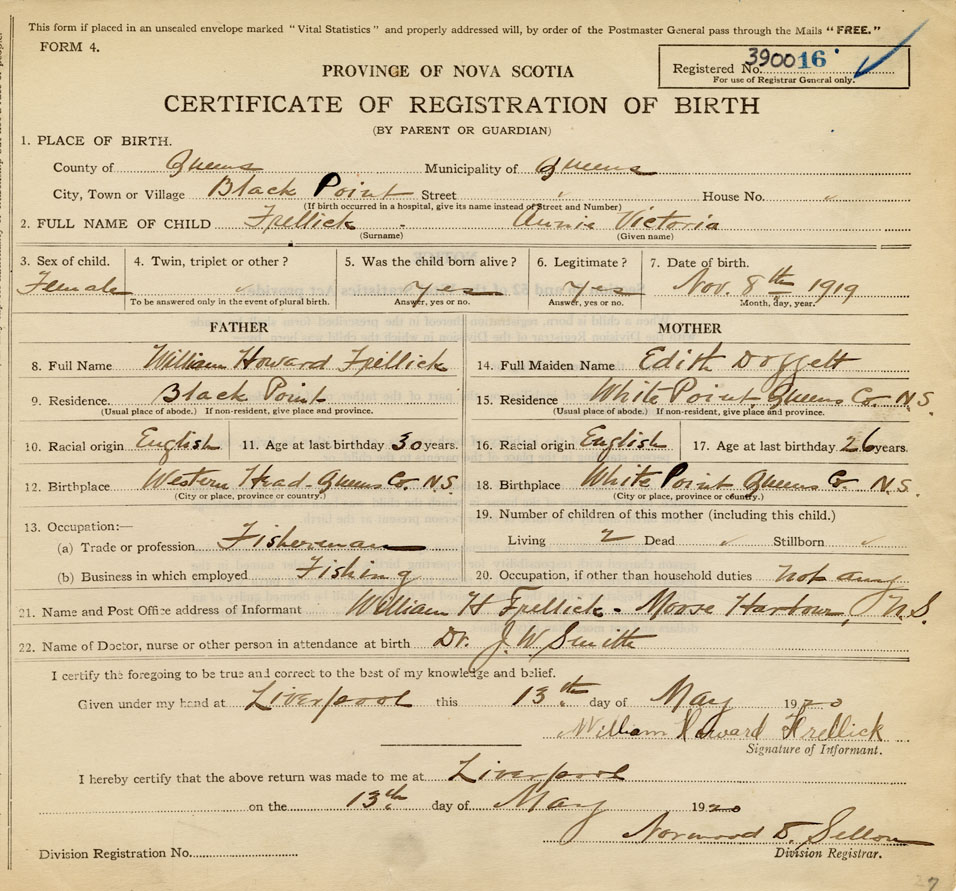 This form if placed in an unsealed envelope marked "Vital Statistics" and properly addressed will, by order of the Postmaster General pass through the Mails "FREE."
FORM 4.
Registered No. 390016
For use of Registrar General only.
PROVINCE OF NOVA SCOTIA
CERTIFICATE OF REGISTRATION OF BIRTH
(BY PARENT OR GUARDIAN)
1. PLACE OF BIRTH.
County of Queens Municipality of Queens
City, Town or Village Black Point Street House No.
(If birth occurred in a hospital, give its name instead of Street and Number)
2. FULL NAME OF CHILD Frellick Annie Victoria
(Surname) (Given name)
3. Sex of child. 4. Twin, triplet or other? 5. Was the child born alive? 6. Legitimate? 7. Date of birth.
Female yes yes Nov. 8th 1919
To be answered only in the event of plural birth. Answer, yes or no. Answer, yes or no. Month, day, year.
FATHER MOTHER
8. Full Name William Howard Frellick 14. Full Maiden Name Edith Doggett
9. Residence. Black Point 15. Residence White Point Queens Co. N.S.
(Usual place of abode.) If non-resident, give place and province. (Usual place of abode.) If non-resident, give place and province.
10. Racial origin English 11. Age at last birthday 30 years. 16. Racial origin English 17. Age at last birthday 26 years.
12. Birthplace Western Head Queens Co. N.S. 18. Birthplace White Point Queens Co. N.S.
(City or place, province or country.) (City or place, province or country.)
13. Occupation:— 19. Number of children of this mother (including this child.)
(a) Trade or profession Fisherman Living 2 Dead Stillborn
(b) Business in which employed Fishing 20. Occupation, if other than household duties not any
21. Name and Post Office address of Informant William H Frellick - Moose Harbour, N.S.
22. Name of Doctor, nurse or other person in attendance at birth Dr. J. W. Smith
I certify the foregoing to be true and correct to the best of my knowledge and belief.
Given under my hand at Liverpool this 13th day of May 1920
William Howard Frellick
Signature of Informant.
I hereby certify that the above return was made to me at Liverpool
on the 13th day of May 1920
Norwood Sellon
Division Registration No. Division Registrar.